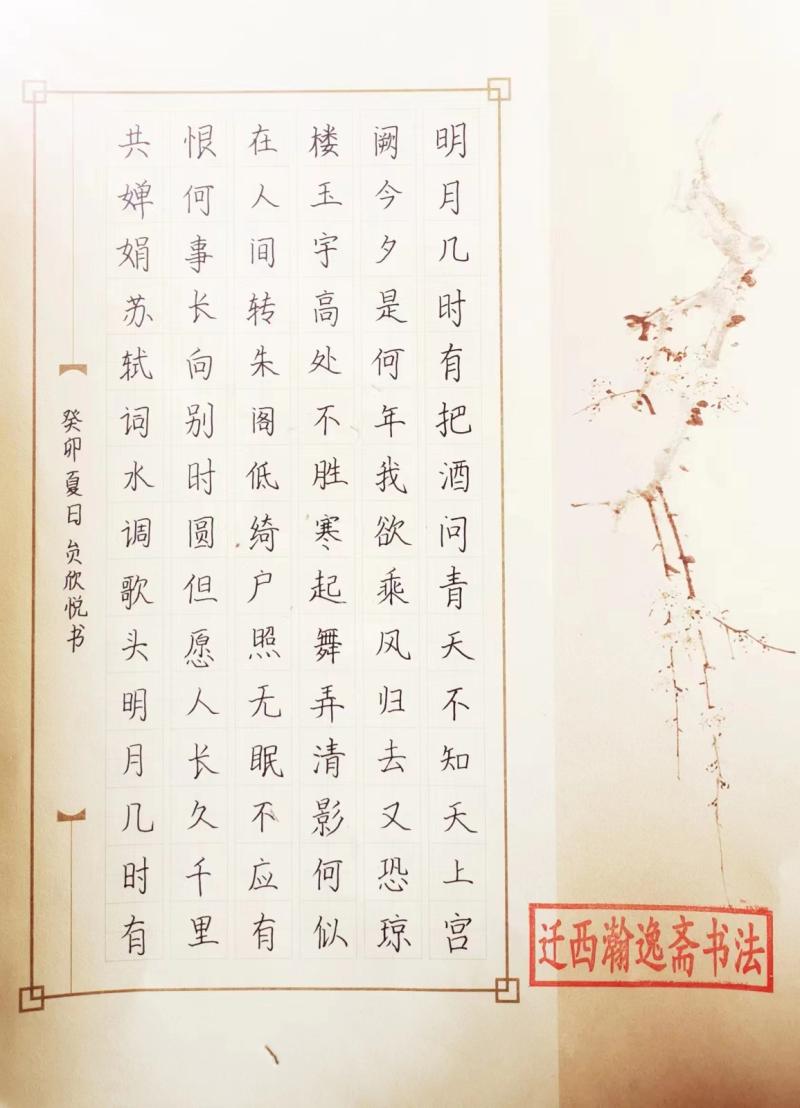 明月几时有把酒问青天不知天上宫
阙今夕是何年我欲乘风归去又恐琼
楼玉宇高处不胜寒起舞弄清影何似
在人间转朱阁低绮户照无眠不应有
恨何事长向别时圆但愿人长久千里
共婵娟苏轼词水调歌头明月几时有
癸卯夏日贠欣悦书
迁西瀚逸斋书法